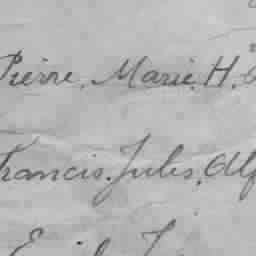 Pierre. Marie. H.
Francis. Jules. Alf